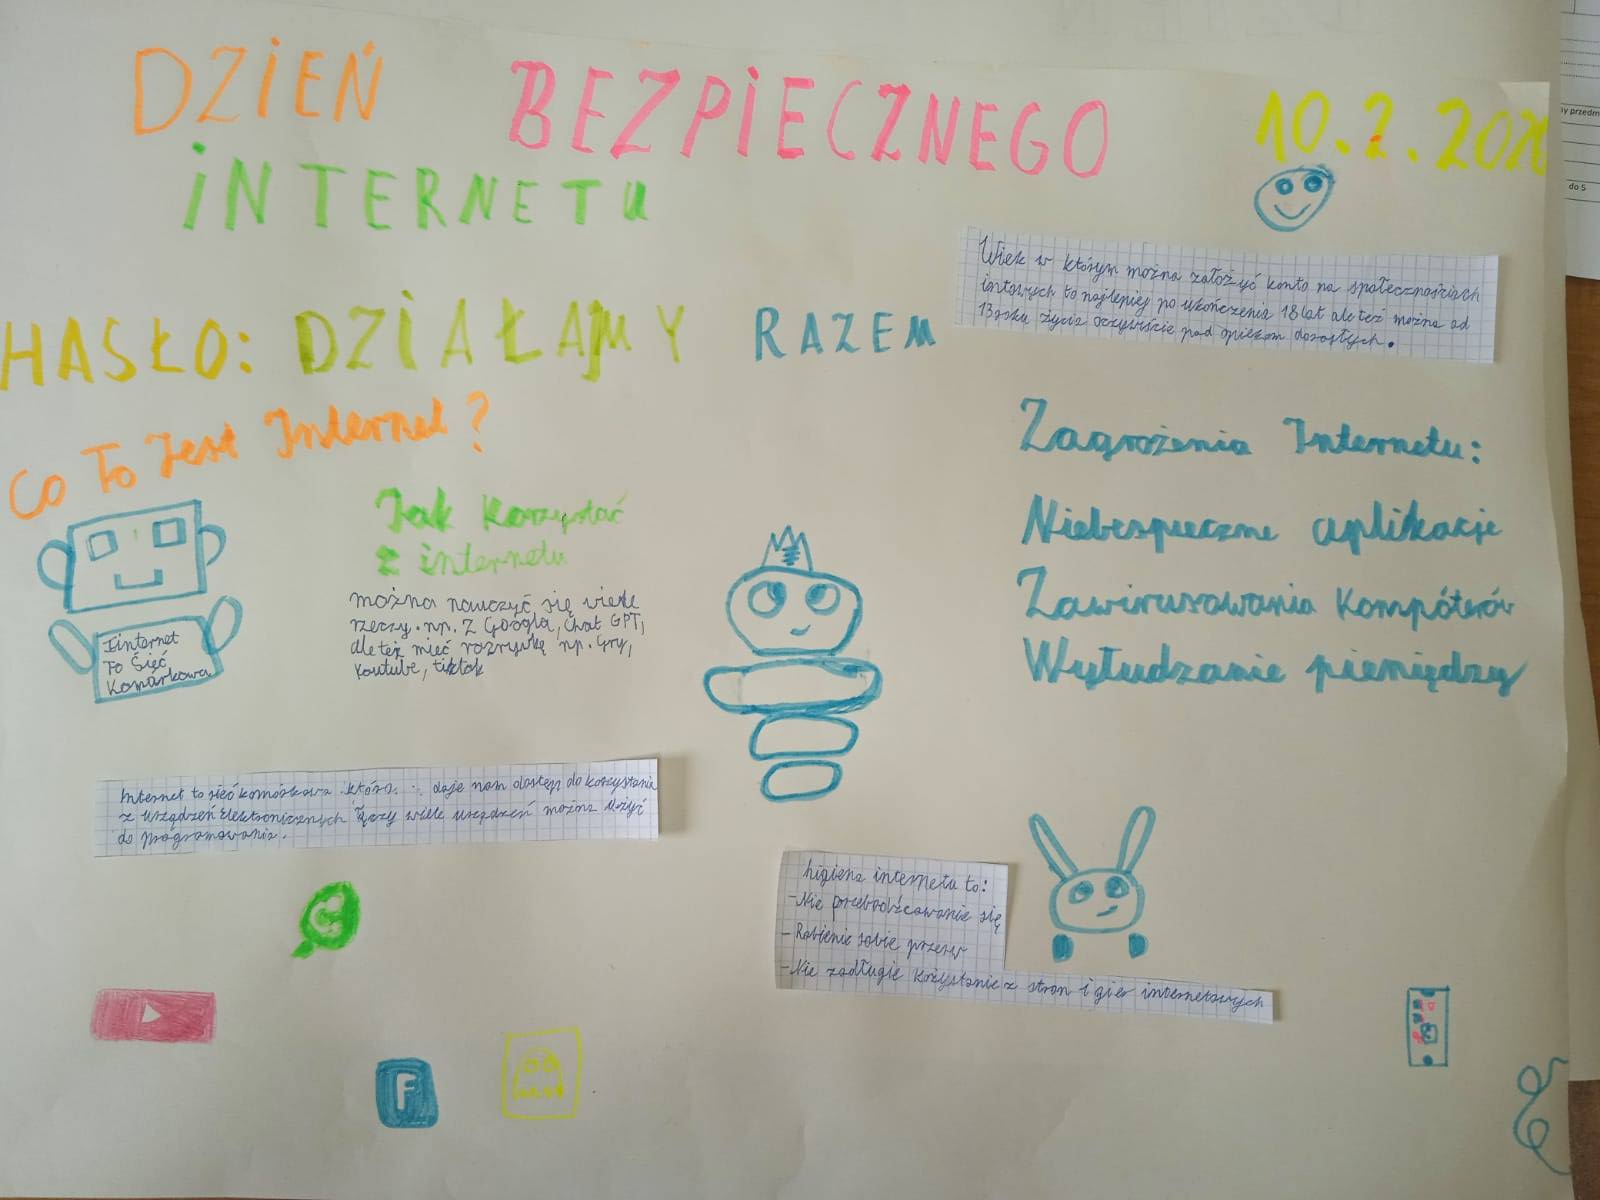 DZIEŃ BEZPIECZNEGO 10.2.202
INTERNETU
Wiek w którym można założyć konto na społecznościach
intowych to najlepiej po ukończeniu 18 lat ale też można od
13 roku życia oczywiście pod opiekom dorosłych.
HASŁO: DZIAŁAJMY RAZEM
Co To Jest Internet?
Iinternet
To Sięć
Komurkowa
Jak Korzystać
z internetu
można nauczyć się wiele
rzeczy. np. Z Googla, Chat GPT,
ale też mieć rozrywkę np. Gry,
Youtube, tiktok
Zagrożenia Internetu:
Niebespieczne aplikacje
Zawirusowania Kompóterów
Wyłudzanie pieniędzy
Internet to sieć komórkowa która daje nam dostęp do korzystania
z urządzeń Elektronicznych Łączy wiele urządzeń można Użyć
do programowania.
higiena internetu to:
- Nie przebodźcowanie się
- Robienie sobie przerw
- Nie zadługie kożystanie z stron i gier internetowych
F
y przedm
do 5